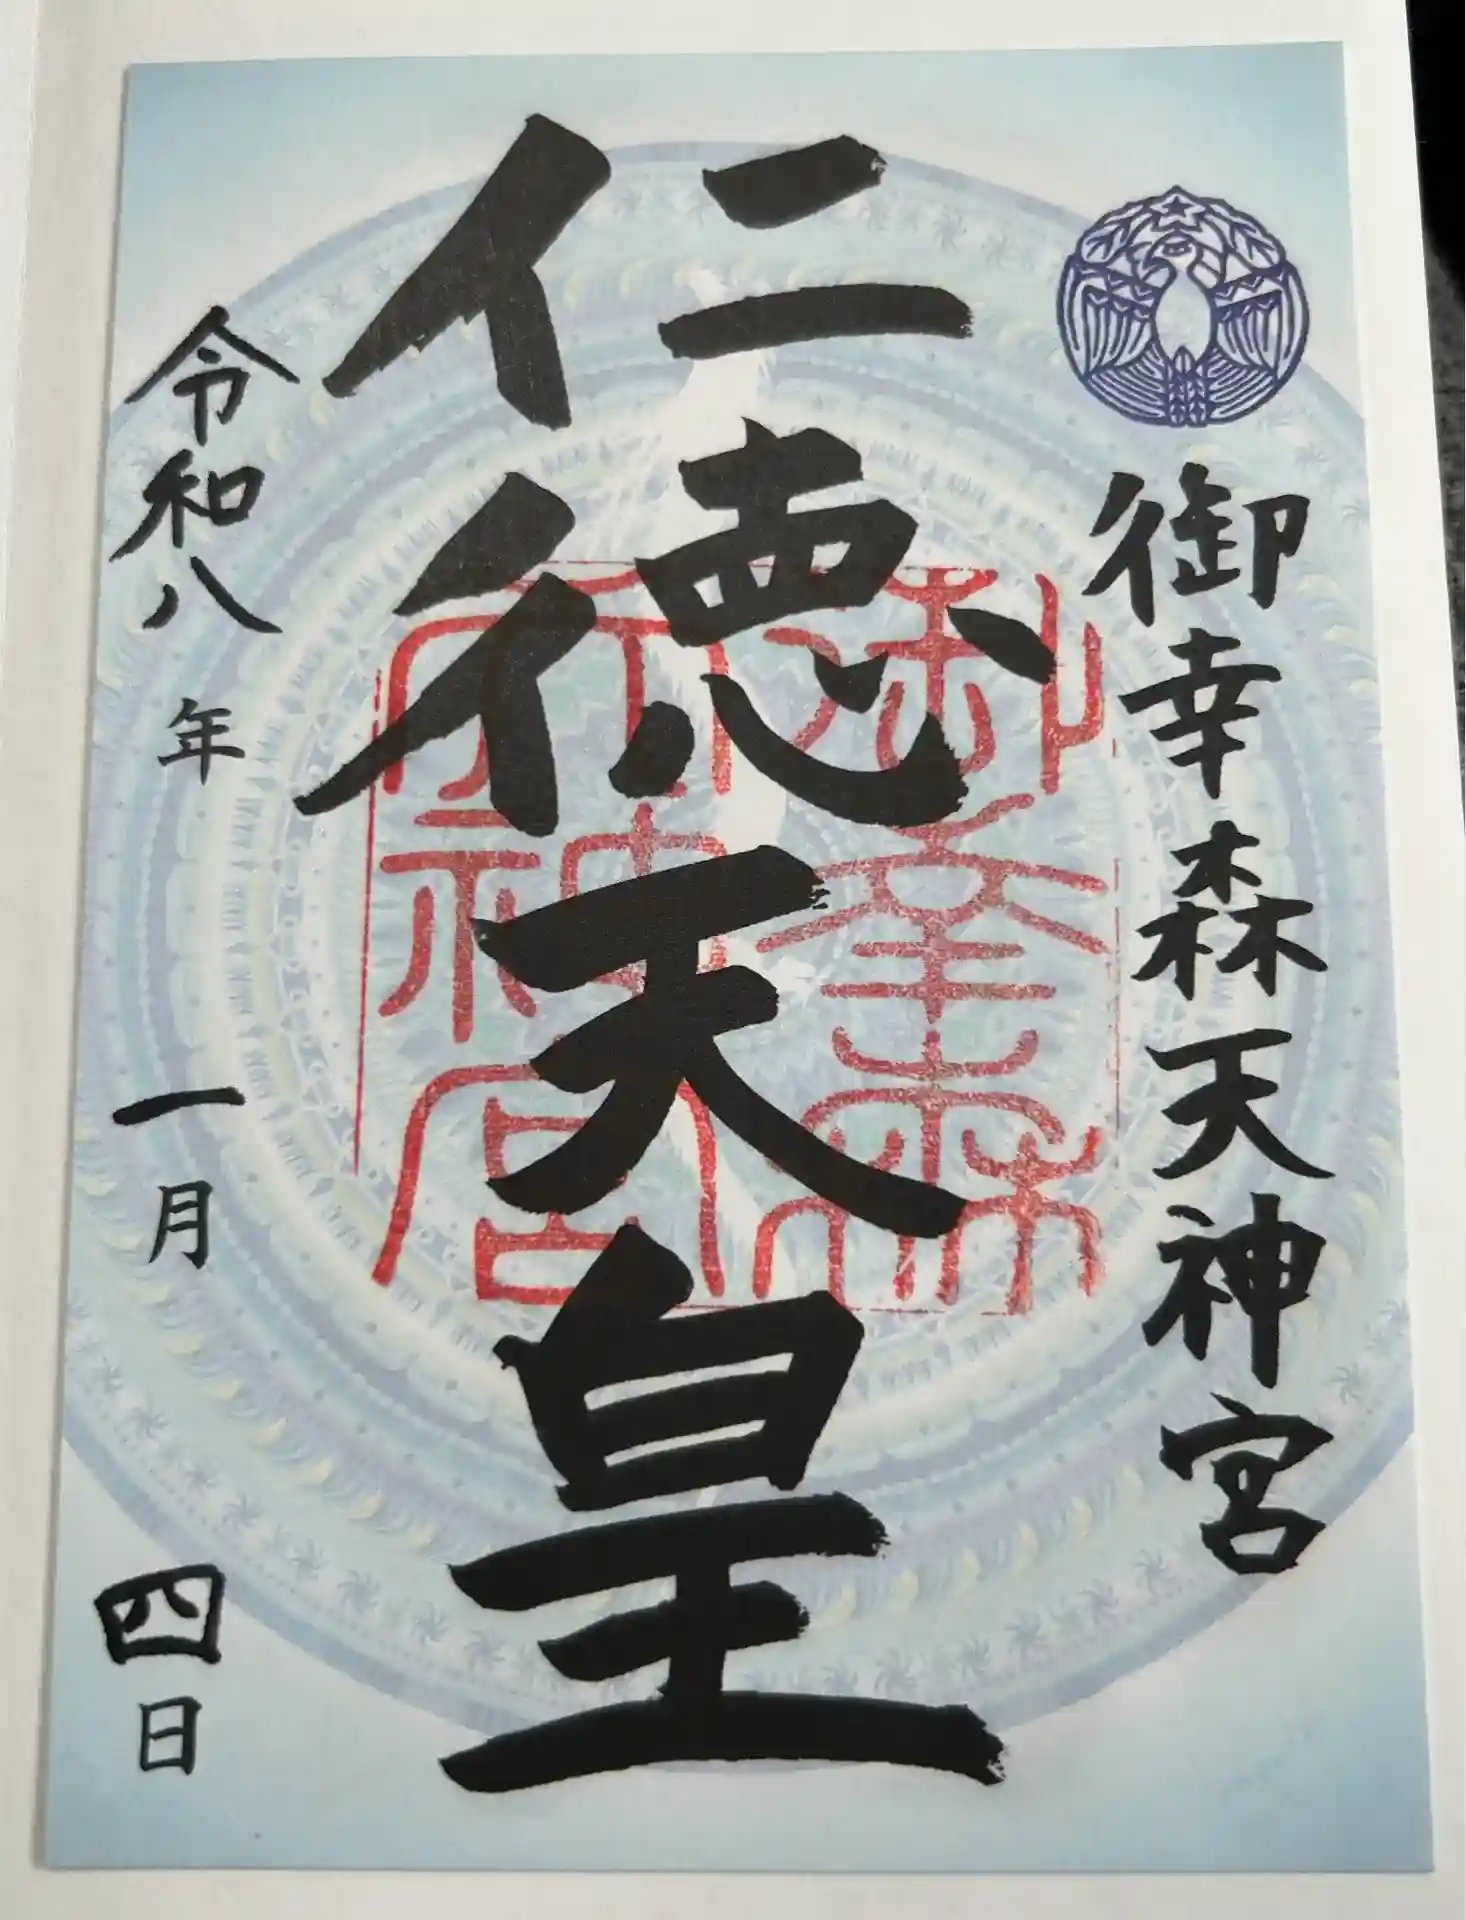 御幸森天神宮
仁徳天皇
御幸森天神宮
令和八年一月四日